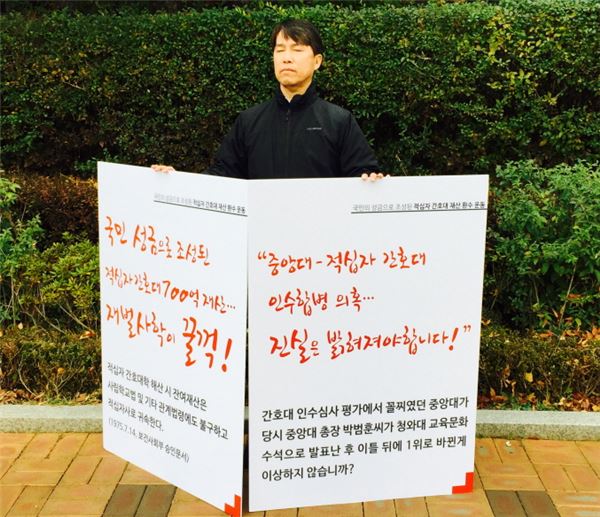 국민의 성금으로 조성된 적십자 간호대 재산 환수 운동
국민 성금으로 조성된
적십자 간호대 700억 재산...
재벌사학이 꿀꺽!
적십자 간호대학 해산 시 잔여재산은
사립학교법 및 기타 관계법령에도 불구하고
적십자사로 귀속한다.
(1975.7.14. 보건사회부 승인문서)
국민의 성금으로 조성된 적십자 간호대 재산 환수 운동
“중앙대-적십자 간호대
인수합병 의혹...
진실은 밝혀져야합니다!”
간호대 인수심사 평가에서 꼴찌였던 중앙대가
당시 중앙대 총장 박범훈씨가 청와대 교육문화
수석으로 발표난 후 이틀 뒤에 1위로 바뀐게
이상하지 않습니까?